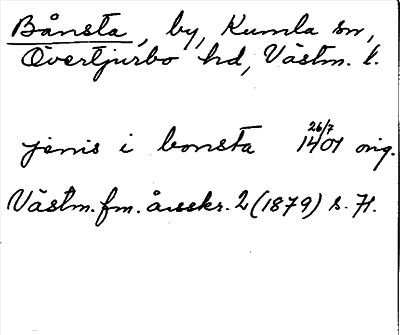 Bånsta, by, Kumla sn,
Övertjurbo hd, Västm. l.
26/7
jënis i bonsta 1401 orig.
Västm. fm. årsskr. 2 (1879) s. 71.